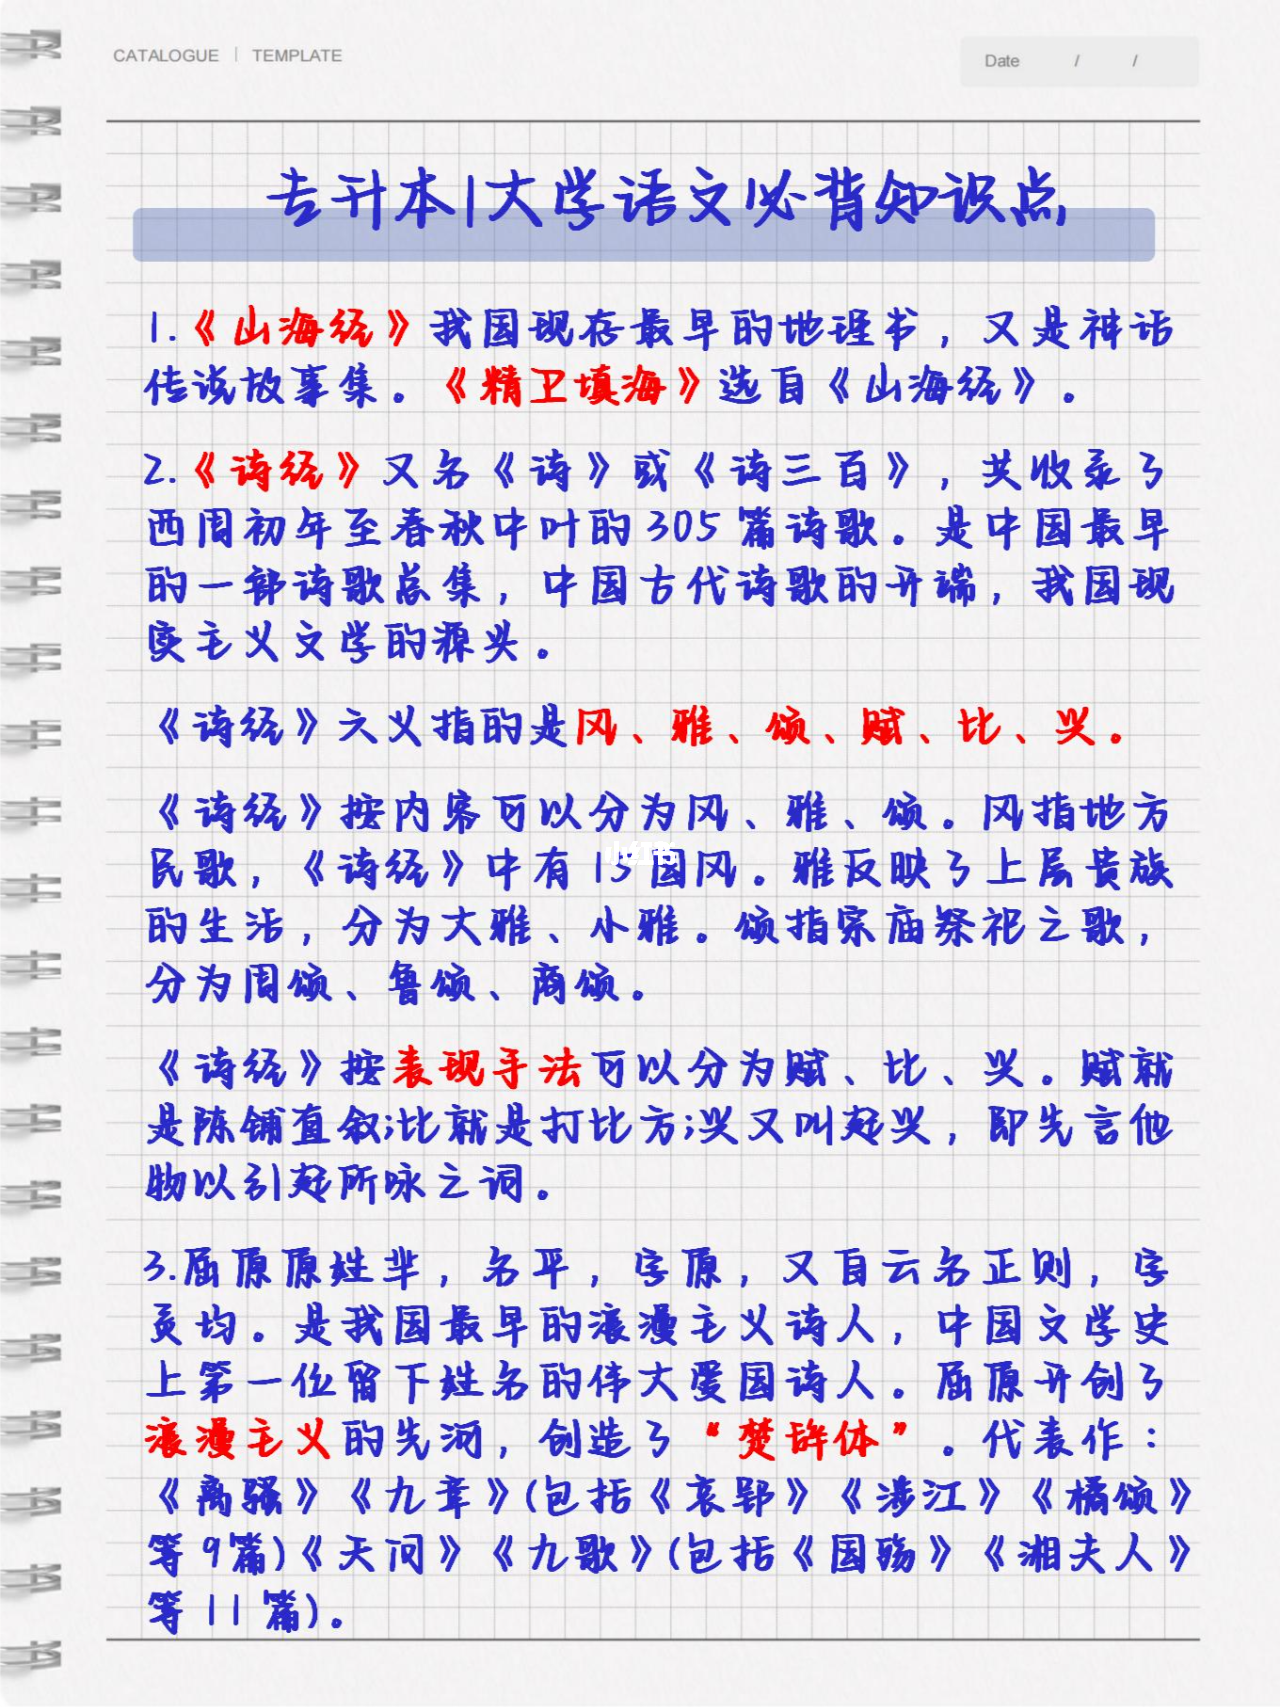 CATALOGUE | TEMPLATE
Date / /
专升本|大学语文必背知识点
1.《山海经》我国现存最早的地理书，又是神话
传说故事集。《精卫填海》选自《山海经》。
2.《诗经》又名《诗》或《诗三百》，共收录了
西周初年至春秋中叶的305篇诗歌。是中国最早
的一部诗歌总集，中国古代诗歌的开端，我国现
实主义文学的源头。
《诗经》六义指的是风、雅、颂、赋、比、兴。
《诗经》按内容可以分为风、雅、颂。风指地方
民歌，《诗经》中有15国风。雅反映了上层贵族
的生活，分为大雅、小雅。颂指宗庙祭祀之歌，
分为周颂、鲁颂、商颂。
《诗经》按表现手法可以分为赋、比、兴。赋就
是陈铺直叙;比就是打比方;兴又叫起兴，即先言他
物以引起所咏之词。
3.屈原原姓芈，名平，字原，又自云名正则，字
灵均。是我国最早的浪漫主义诗人，中国文学史
上第一位留下姓名的伟大爱国诗人。屈原开创了
浪漫主义的先河，创造了“楚辞体”。代表作：
《离骚》《九章》(包括《哀郢》《涉江》《橘颂》
等9篇)《天问》《九歌》(包括《国殇》《湘夫人》
等11篇)。